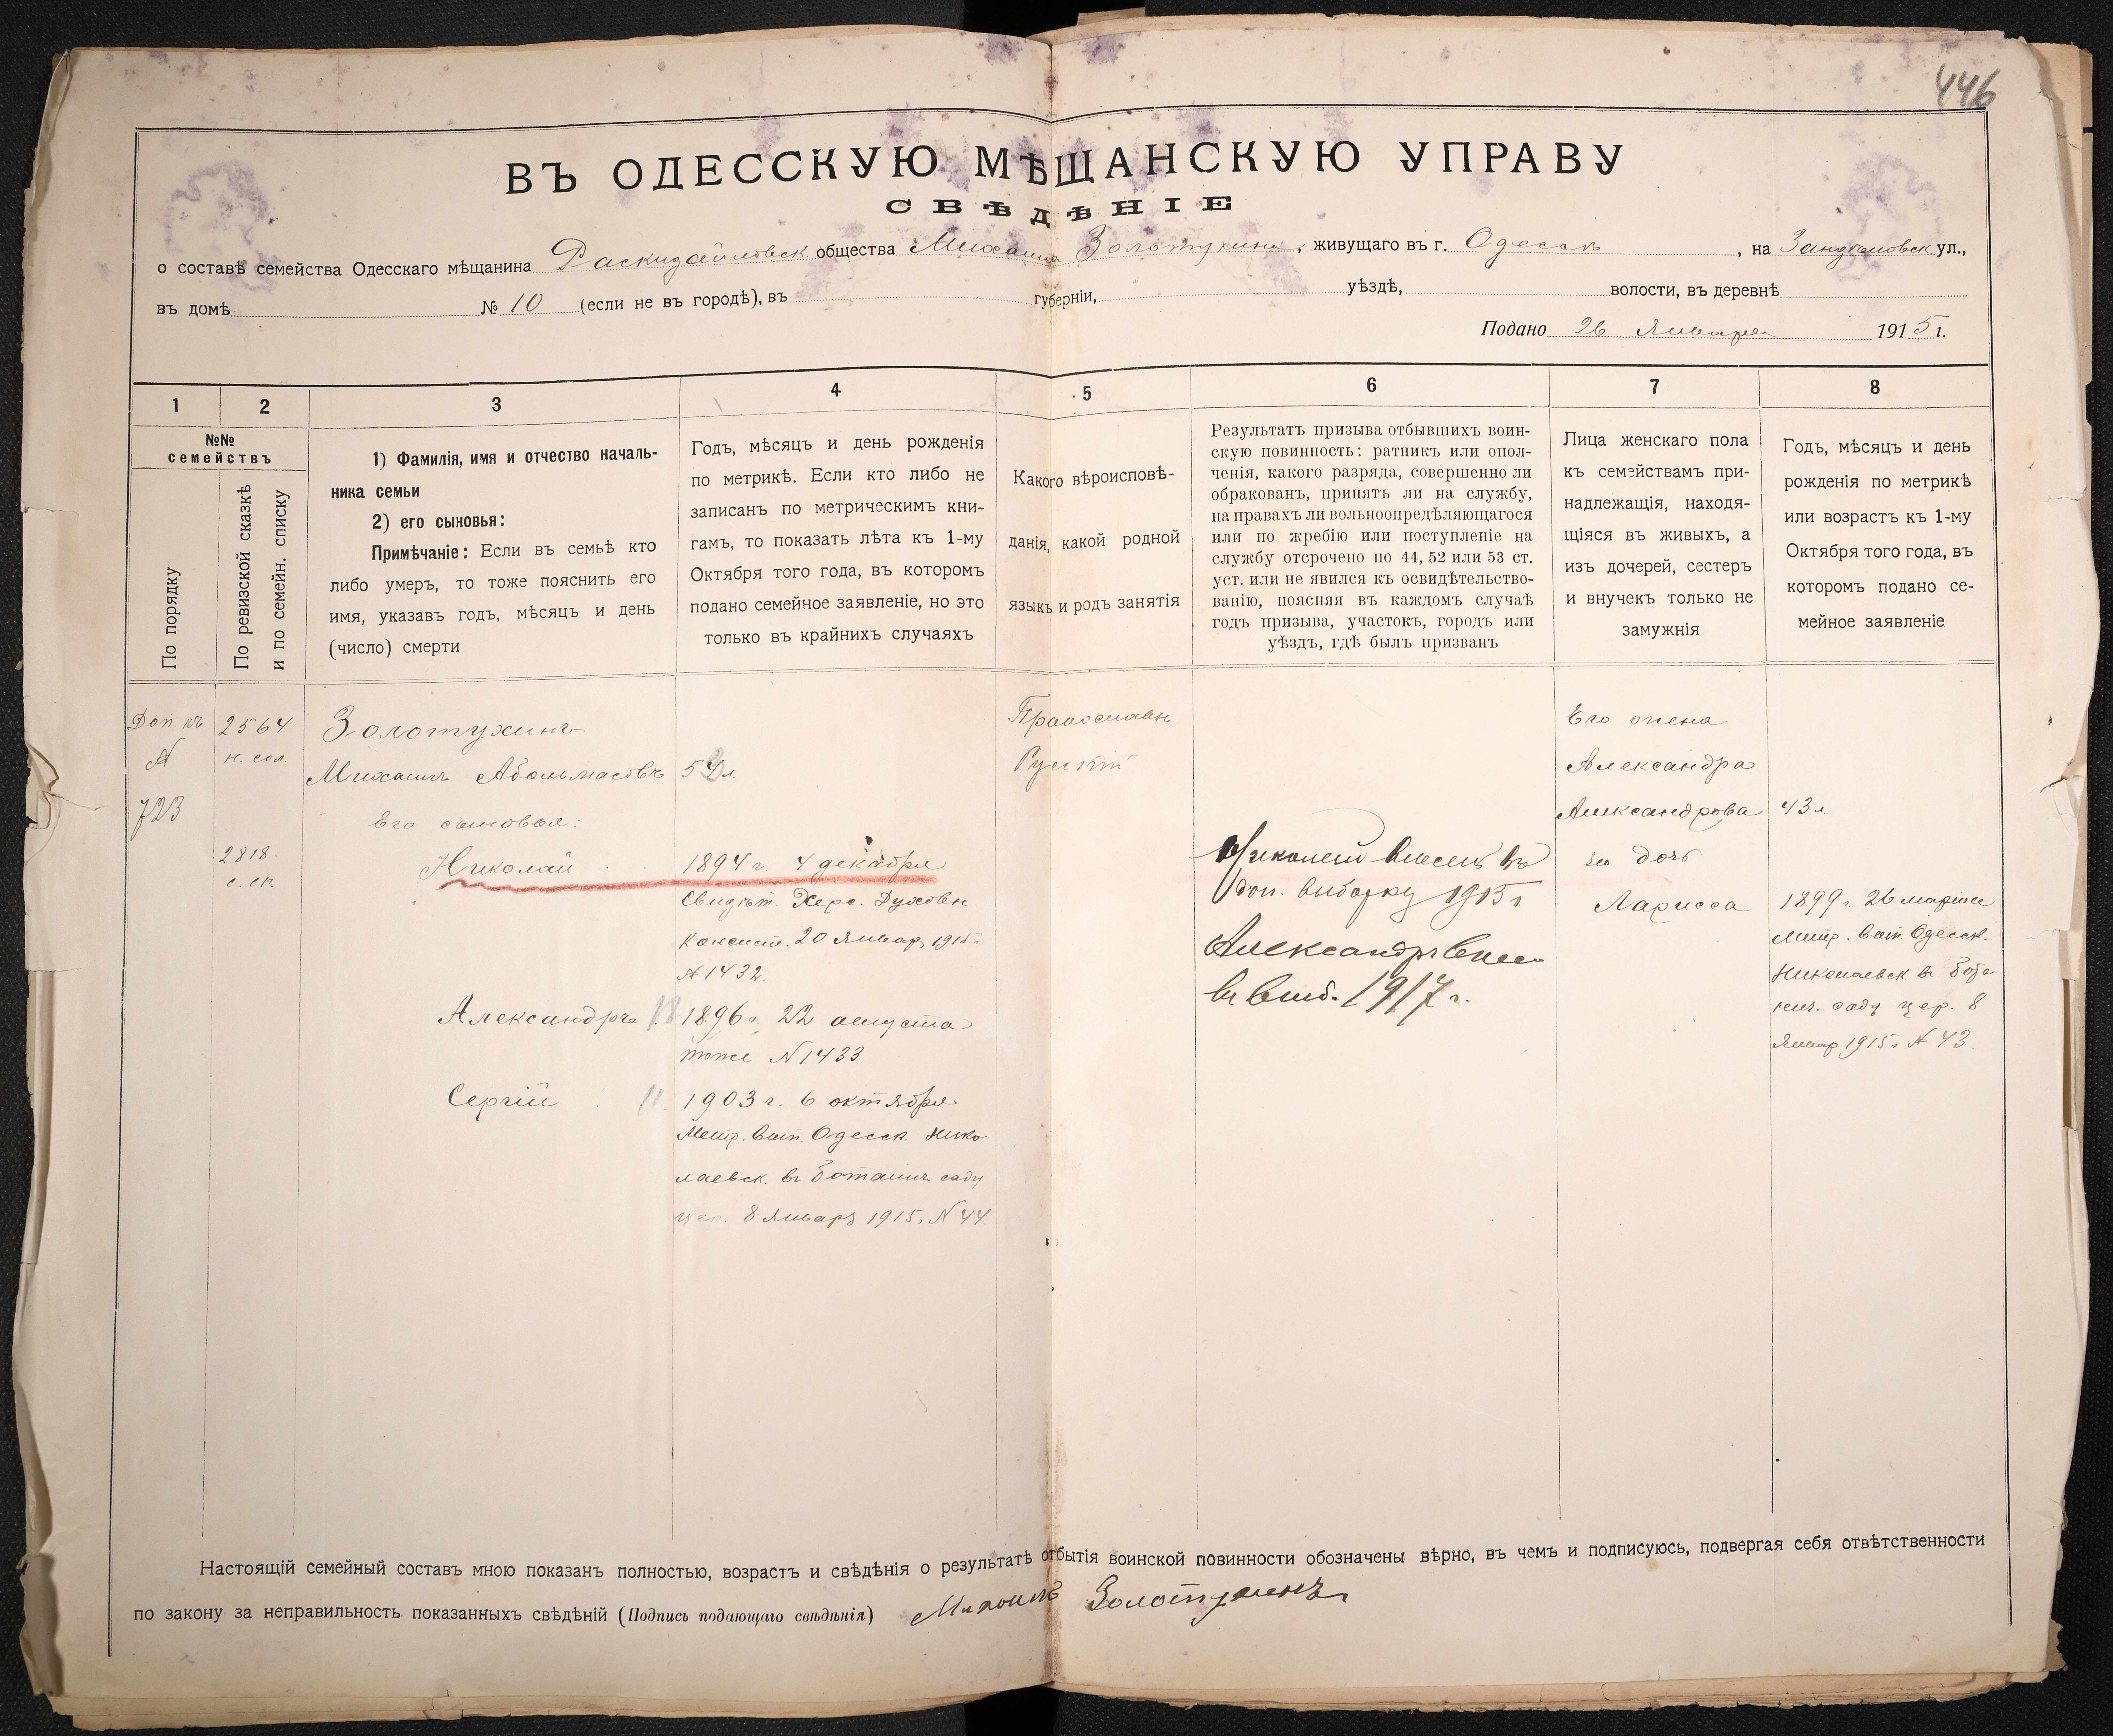 446
ВЪ ОДЕССКУЮ МѢЩАНСКУЮ УПРАВУ
СВѢДѢНІЕ
о составѣ семейства Одесскаго мѣщанина Раскидайловск общества Михаила Золотухина, живущаго въ г. Одессѣ, на ул.,
въ домѣ № 10 (если не въ городѣ), въ губерніи, уѣздѣ, волости, въ деревнѣ
Подано 26 Января 1915 г.
1 2 3 4 5 6 7 8
№№
семействъ
По порядку
По ревизской сказкѣ
и по семейн. списку
1) Фамилія, имя и отчество началь-
ника семьи
2) его сыновья:
Примѣчаніе: Если въ семьѣ кто
либо умеръ, то тоже пояснить его
имя, указавъ годъ, мѣсяцъ и день
(число) смерти
Годъ, мѣсяцъ и день рожденія
по метрикѣ. Если кто либо не
записанъ по метрическимъ кни-
гамъ, то показать лѣта къ 1-му
Октября того года, въ которомъ
подано семейное заявленіе, но это
только въ крайнихъ случаяхъ
Какого вѣроисповѣ-
данія, какой родной
языкъ и родъ занятія
Результатъ призыва отбывшихъ воин-
скую повинность: ратникъ или опол-
ченія, какого разряда, совершенно ли
обракованъ, принятъ ли на службу,
на правахъ ли вольноопредѣляющагося
или по жребію или поступленіе на
службу отсрочено по 44, 52 или 53 ст.
уст. или не явился къ освидѣтельство-
ванію, поясняя въ каждомъ случаѣ
годъ призыва, участокъ, городъ или
уѣздъ, гдѣ былъ призванъ
Лица женскаго пола
къ семействамъ при-
надлежащія, находя-
щіяся въ живыхъ, а
изъ дочерей, сестеръ
и внучекъ только не
замужнія
Годъ, мѣсяцъ и день
рожденія по метрикѣ
или возрастъ къ 1-му
Октября того года, въ
которомъ подано се-
мейное заявленіе
Доп. къ
№
723
2564
2818
с. сп.
Золотухинъ
Михаилъ
Его сыновья:
Николай
1894 г. 4 декабря
Свидѣт. Херс. Духовн
Консист. 20 Январ 1915 г
№ 1432
Александръ 18
1896 г. 22 августа
тоже № 1433
Сергій 11
1903 г. 6 октября
Метр. вып. Одесск. Нико
лаевск. въ Ботанич саду
цер. 8 Январ 1915 г. № 44
Православн
Русскій
Николай внесенъ въ
доп. выборку 1915 г
Александръ внес
въ выб. 1917 г.
Его жена
Александра
Александрова
43 л
его дочь
Ларисса
1899 г. 26 марта
Метр. вып. Одесск.
Николаевск въ Бота-
нич. саду цер. 8
Январ 1915 г № 43
Настоящій семейный составъ мною показанъ полностью, возрастъ и свѣдѣнія о результатѣ отбытія воинской повинности обозначены вѣрно, въ чемъ и подписуюсь, подвергая себя отвѣтственности
по закону за неправильность показанныхъ свѣдѣній (Подпись подающаго свѣдѣнія) Михаилъ Золотухинъ